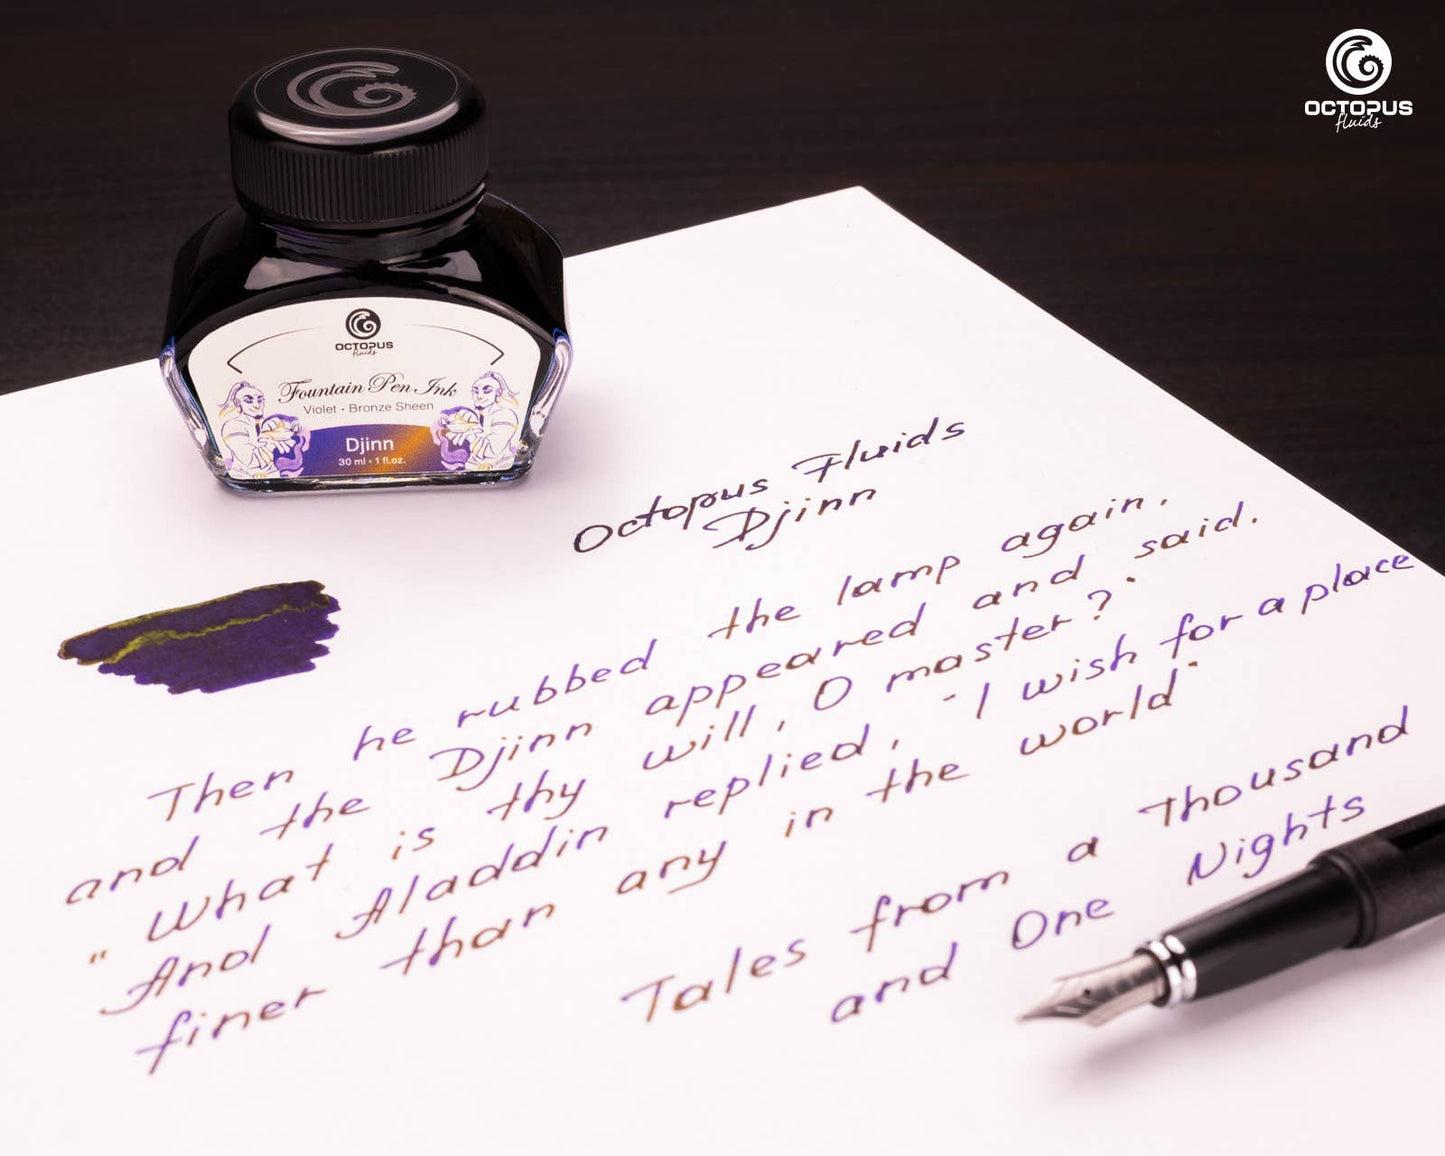 OCTOPUS
fluids
OCTOPUS
fluids
Fountain Pen Ink
Violet • Bronze Sheen
Djinn
30 ml • 1 fl.oz.
Octopus Fluids
Djinn
Then he rubbed the lamp again.
and the Djinn appeared and said.
"What is thy will, O master?"
And Aladdin replied, "I wish for a place
finer than any in the world"
Tales from a Thousand
and One Nights